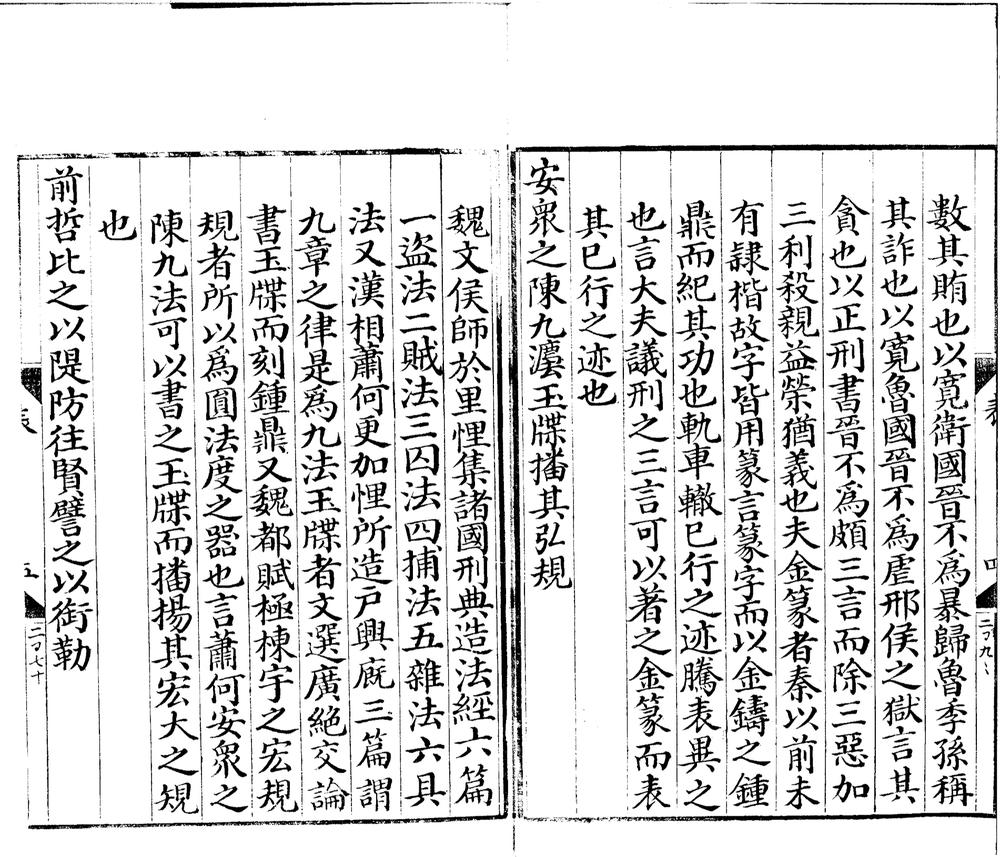 數其賄也以寬衛國晉不爲暴歸魯季孫稱
其詐也以寬魯國晉不爲虐邢侯之獄言其
貪也以正刑書晉不爲頗三言而除三惡加
三利殺親益榮猶義也夫金篆者秦以前未
有隷楷故字皆用篆言篆字而以金鑄之鍾
鼎而紀其功也軌車轍已行之迹騰表異之
也言大夫議刑之三言可以著之金篆而表
其已行之迹也
安衆之陳九灋玉牒播其弘規
魏文侯師於里悝集諸國刑典造法經六篇
一盗法二賊法三囚法四捕法五雜法六具
法又漢相蕭何更加悝所造戸興廐三篇謂
九章之律是爲九法玉牒者文選廣絶交論
書玉牒而刻鍾鼎又魏都賦極棟宇之宏規
規者所以爲圓法度之器也言蕭何安衆之
陳九法可以書之玉牒而播揚其宏大之規
也
前哲比之以隄防往賢譬之以銜勒
表
四
五